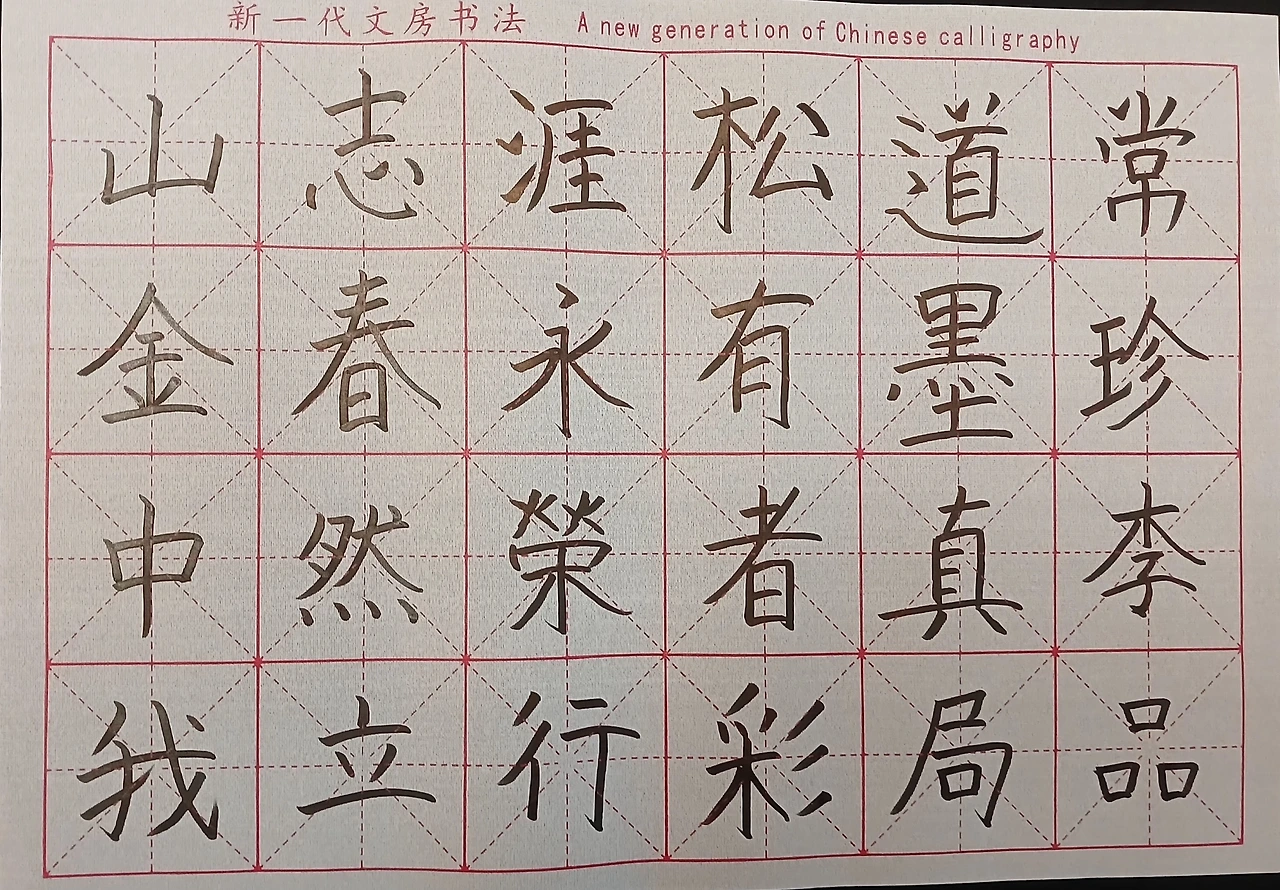 新一代文房书法 A new generation of Chinese calligraphy
山志涯松道常
金春永有墨珍
中然榮者真李
我立行彩局品